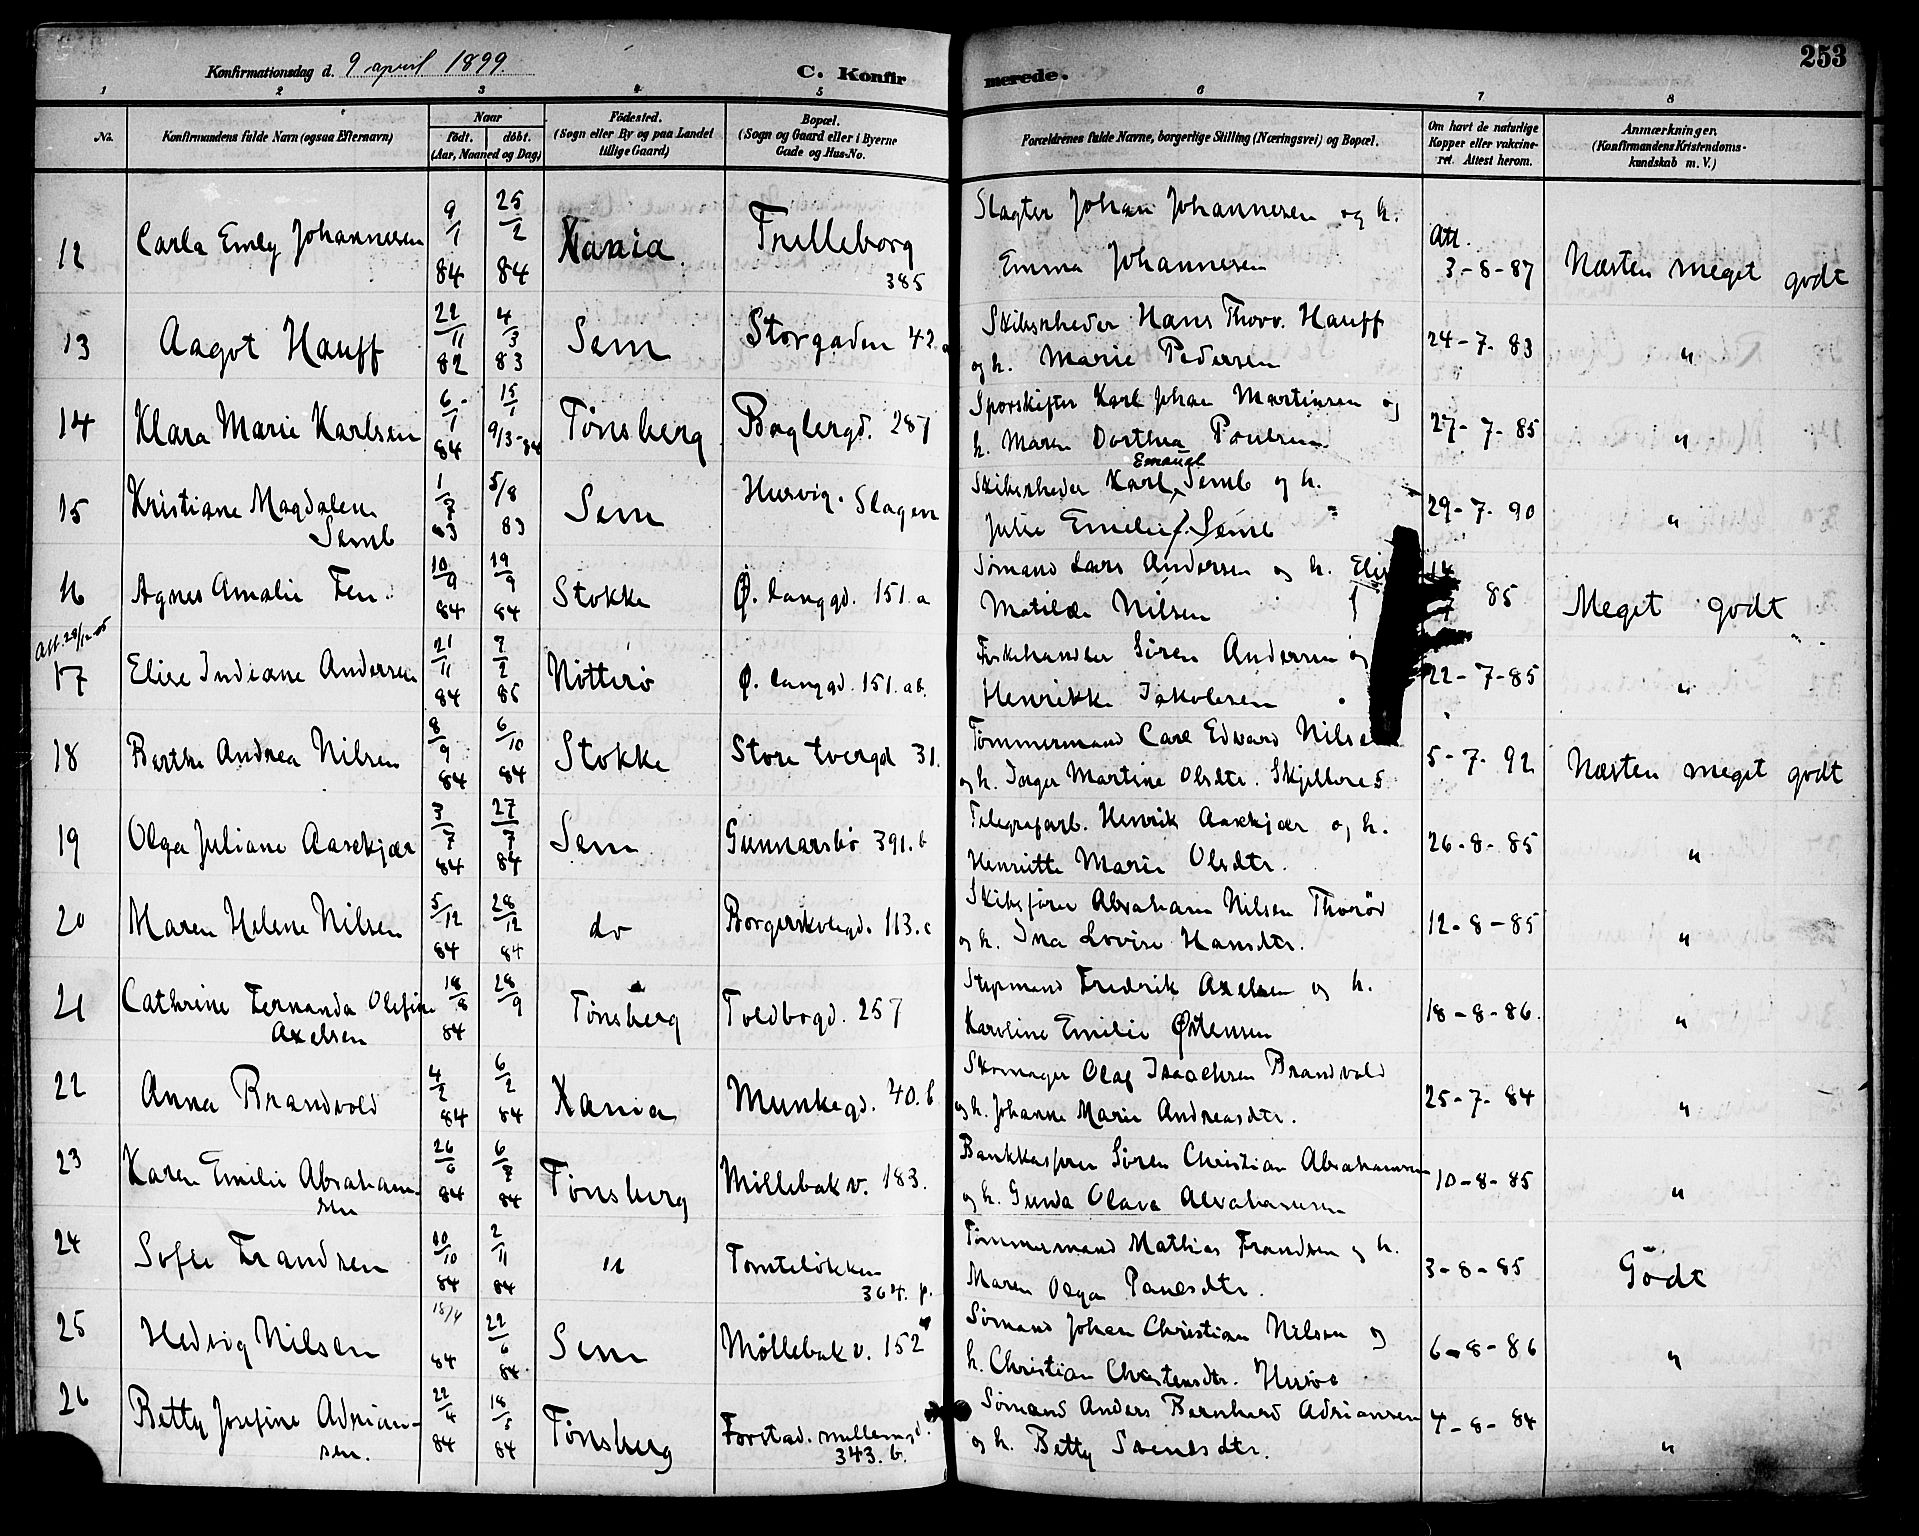 253
Konfirmationsdag d. 9 april 1899.
C. Konfirmerede.
1 2 3 4 5 6 7 8
No.
Konfirmandens fulde Navn (ogsaa Efternavn)
Naar
født. døbt.
(Aar, Maaned og Dag)
Fødested.
(Sogn eller By og paa Landet
tillige Gaard)
Bopæl.
(Sogn og Gaard eller i Byerne
Gade og Hus-No.
Forældrenes fulde Navne, borgerlige Stilling (Næringsvei) og Bopæl.
Om havt de naturlige
Kopper eller vakcine-
ret. Attest herom.
Anmærkninger.
(Konfirmandens Kristendoms-
kundskab m. V.)
12 Carla Emely Johannesen 9/1 84 25/2 84 Xania. Trelleborg 385
Slagter Johan Johannesen og h.
Emma Johannesen
Att. 3-8-87 Næsten meget godt
13 Aagot Hauff 22/11 82 4/3 83 Sem Storgaden 42.a
Skibsrheder Hans Thorv. Hauff
og h. Marie Pedersen
24-7-83 "
14 Klara Marie Karlsen 6/1 84 15/1 9/3-84 Tønsberg Baglergd. 287
Sporskifter Karl Johan Martinsen og
h. Maren Dorthea Poulsen
27-7-85 "
15 Kristiane Magdalene
Semb 1/7 83 5/8 83 Sem Husvig. Slagen
Emanuel
Skibsrheder Karl Semb og h.
Julie Emilie Semb
29-7-90 "
16 Agnes Amalie Fen 10/9 84 19/9 84 Stokke Ø. langgd. 151.a
Sømand Lars Andersen og h.
Matilde Nilsen
85 Meget godt
Att. 28/12-05
17 Elise Indiane Andersen 21/11 84 2/2 85 Nötterö Ø. langgd. 151.ab.
Fiskehandler Sören Andersen og
Henrikke Jakobsen
22-7-85 "
18 Berthe Andrea Nilsen 8/9 84 6/10 84 Stokke Store tvergd 31.
Tømmermand Carl Edvard Nilsen
og h. Inger Martine Olsdtr.
5-7-92 Næsten meget godt
19 Olga Juliane Aasekjær 3/7 84 27/7 84 Sem Gunnarsbø 391.b
Telegrafarb. Henrik Aasekjær og h.
Henriette Marie Olsdtr.
26-8-85 "
20 Maren Helene Nilsen 5/12 84 28/12 84 do Borgerskolegd. 113.c
Skibsfører Abraham Nilsen Thorød
og h. Ina Lovise Hansdtr.
12-8-85 "
21 Cathrine Fernanda Olefine
Axelsen 18/8 84 28/9 Tønsberg Toldbogd. 257
Styrmand Fredrik Axelsen og h.
Karoline Emilie Østensen
18-8-86. "
22 Anna Brandvold 4/2 84 6/2 84 Xania Munkegd. 40.b
Skomager Olaf Isaachsen Brandvold
og h. Johanne Marie Andreasdtr.
25-7-84 "
23 Karen Emilie Abraham-
sen 26/6 84 6/7 84 Tønsberg Møllebak v. 183.
Bankkasserer Sören Christian Abrahamsen
og h. Gunda Olava Abrahamsen
10-8-85 "
24 Sofie Frandsen 10/10 84 2/11 84 " Tomteløkken
364. p.
Tømmermand Mathias Frandsen og h.
Maren Olga Paulsdtr.
3-8-85 Godt
25 Hedvig Nilsen 18/4 84 22/6 84. Sem Møllebak v. 152
Sømand Johan Christian Nilsen og
h. Christian Christensdtr. Husøe
6-8-86 "
26 Betty Josefine Adrian-
sen. 22/4 84 18/5 84 Tønsberg Forstad.
343. b.
Sømand Anders Bernhard Adriansen
og h. Betty Svendsdtr.
4-8-84 "